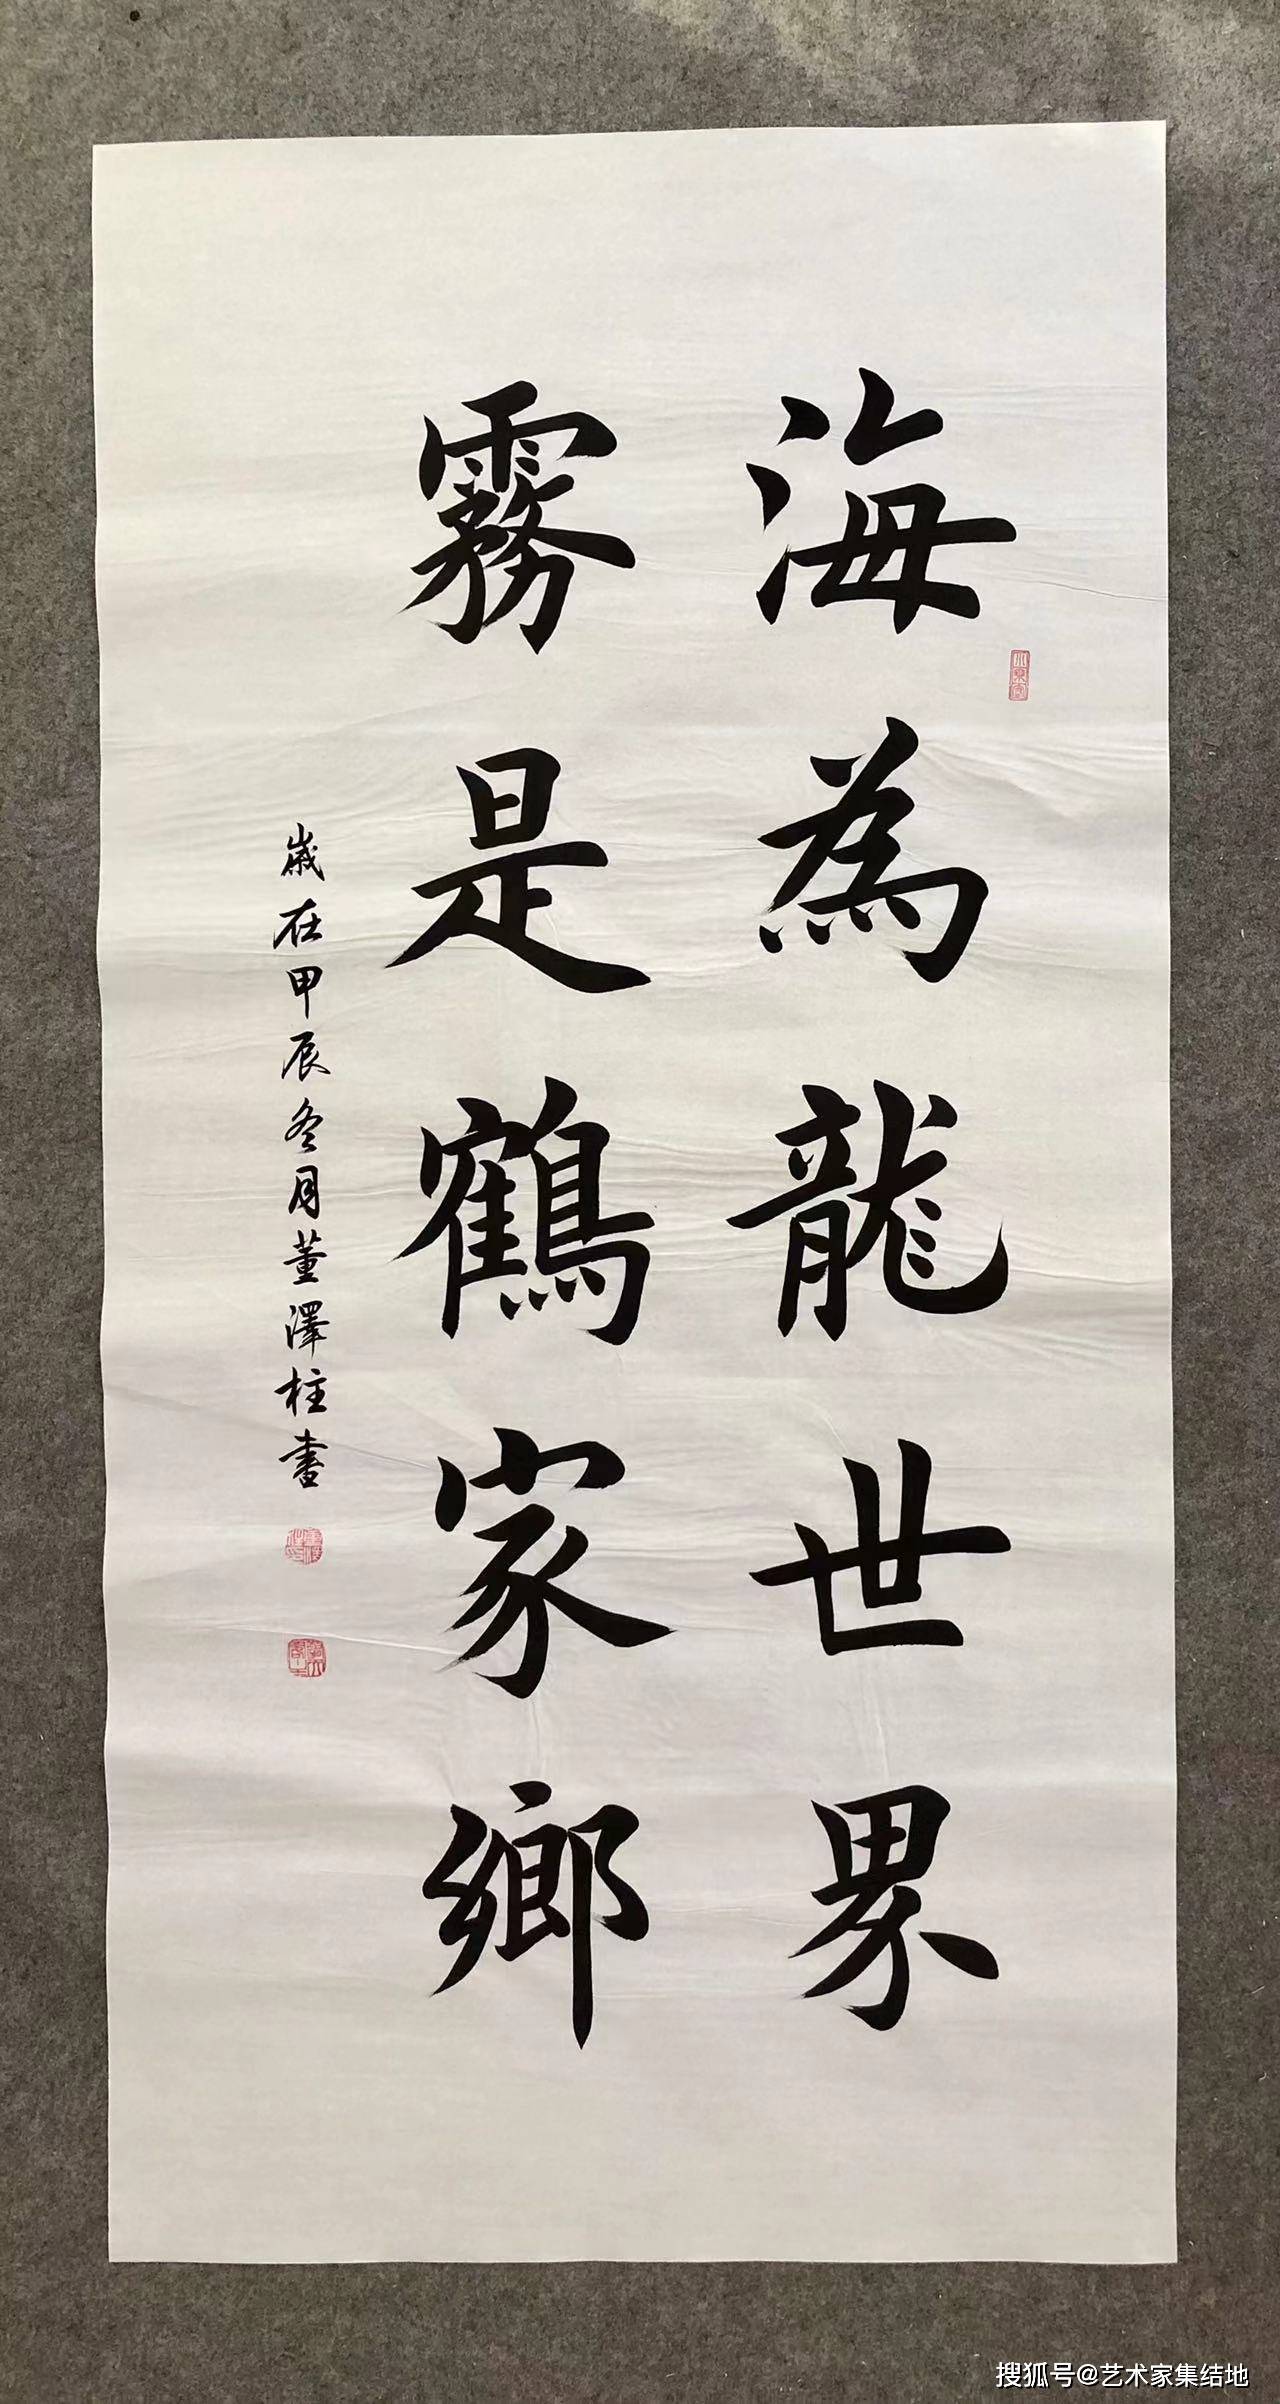 海為龍世界
霧是鶴家鄉
歲在甲辰冬月董澤柱書
搜狐号@艺术家集结地